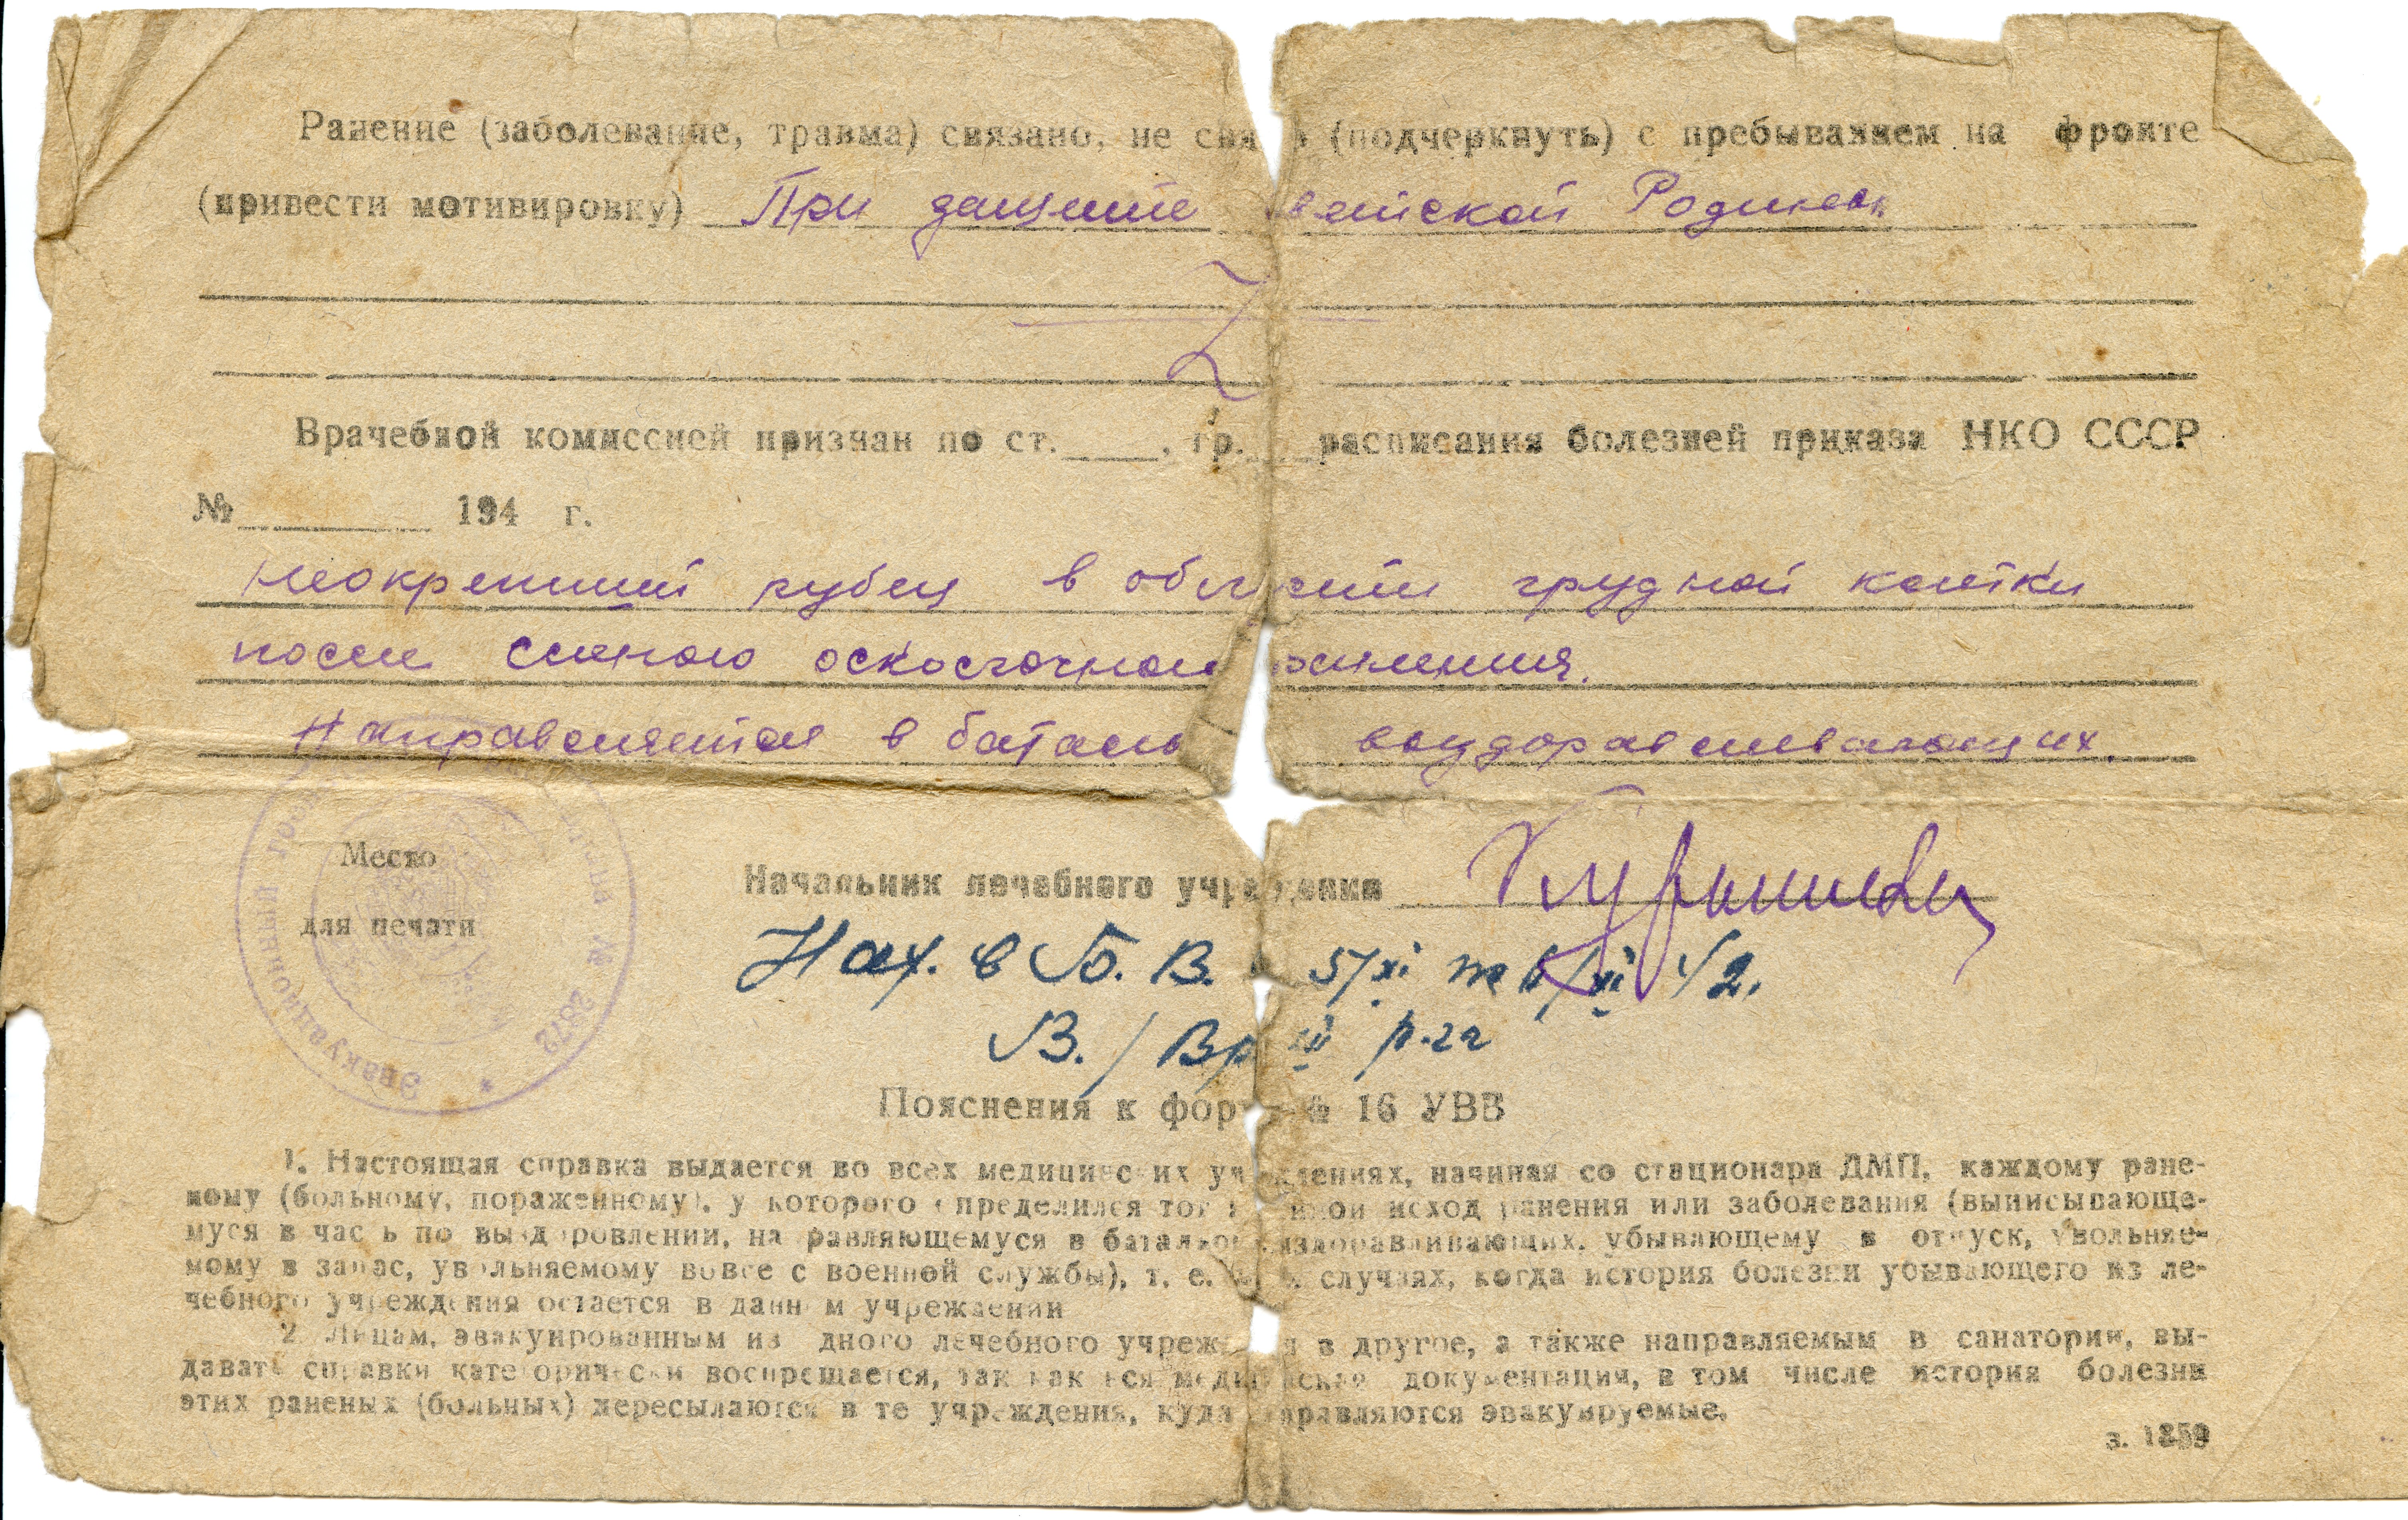 Ранение (заболевание, травма) связано, не свя (подчеркнуть) с пребыванием на фронте
(привести мотивировку) При защите ветской Родины
Врачебной комиссией признан по ст.____, гр.___ расписания болезней приказа НКО СССР
№ ________ 194 г.
Неокрепший рубец в области грудной клетки
после слепого осколочного ранения.
Направляется в батальо выздоравливающих.
Место
для печати
Эвакуационный № 2872 *
Начальник лечебного учреждения
Нах. в Б. В. 5/XI 42.
В./Вр III р-га
Пояснения к форм № 16 УВВ
1. Настоящая справка выдается во всех медицинских учреждениях, начиная со стационара ДМП, каждому ране-
ному (больному, пораженному), у которого определился тот или иной исход ранения или заболевания (выписывающе-
муся в часть по выздоровлении, направляющемуся в батальон выздоравливающих, убывающему в отпуск, увольняе-
мому в запас, увольняемому вовсе с военной службы), т. е. случаях, когда история болезни убывающего из ле-
чебного учреждения остается в данном учреждении
2. Лицам, эвакуированным из одного лечебного учреждения в другое, а также направляемым в санатории, вы-
давать справки категорически воспрещается, так как вся медицинская документация, в том числе история болезни
этих раненых (больных) пересылаются в те учреждения, куда направляются эвакуируемые.
з. 1859